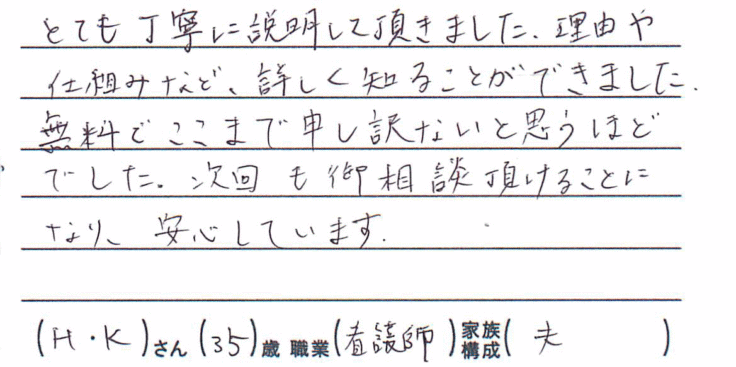 とても丁寧に説明して頂きました。理由や
仕組みなど、詳しく知ることができました。
無料でここまで申し訳ないと思うほど
でした。次回も御相談頂けることに
なり、安心しています。
(H・K)さん(35)歳 職業(看護師)家族構成(夫)